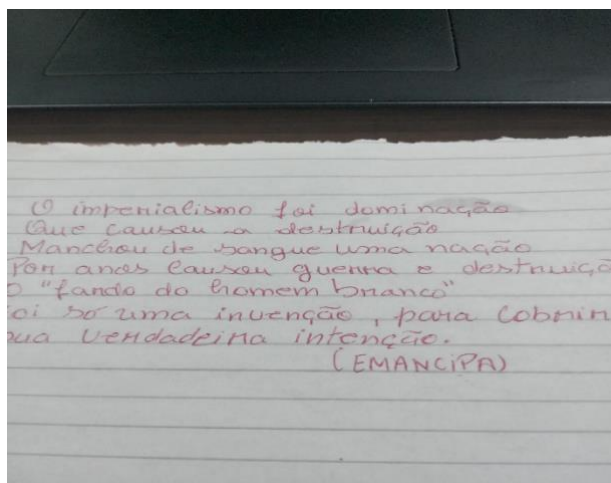 O imperialismo foi dominação
Que causou a destruição
Manchou de sangue uma nação
Por anos causou guerra e destruiçã
O "fardo do homem branco"
oi só uma invenção, para cobrir
sua verdadeira intenção.
(EMANCIPA)